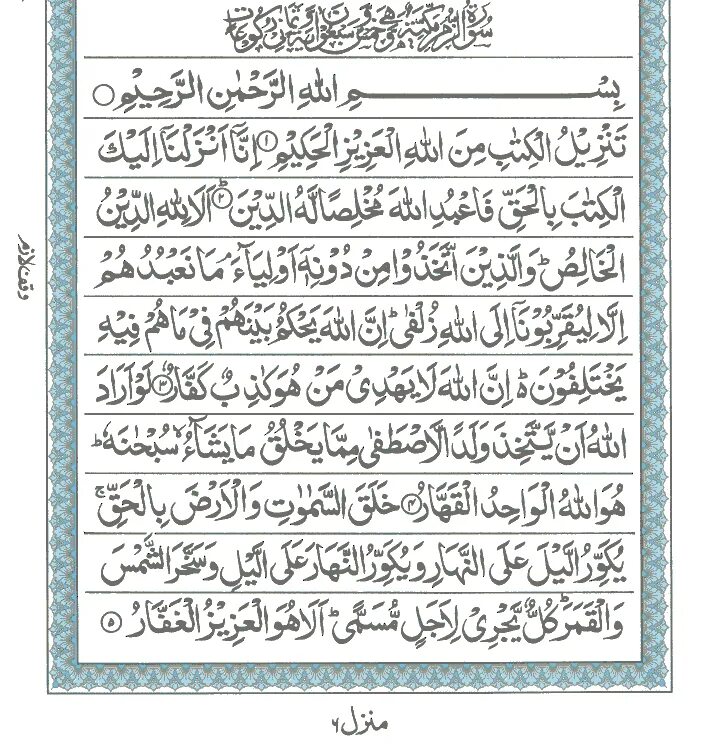 سُوْرَةُ الزُّمَرِ مَكِّيَّةٌ وَّهِيَ خَمْسٌ وَّسَبْعُوْنَ اٰيَةً وَّثَمَانِيْ رُكُوْعَاتٍ
بِسْمِ اللّٰهِ الرَّحْمٰنِ الرَّحِيْمِ ○
تَنْزِيْلُ الْكِتٰبِ مِنَ اللّٰهِ الْعَزِيْزِ الْحَكِيْمِ ۱ اِنَّاۤ اَنْزَلْنَاۤ اِلَيْكَ
الْكِتٰبَ بِالْحَقِّ فَاعْبُدِ اللّٰهَ مُخْلِصًا لَّهُ الدِّيْنَ ؕ ۲ اَلَا لِلّٰهِ الدِّيْنُ
الْخَالِصُ ؕ وَالَّذِيْنَ اتَّخَذُوْا مِنْ دُوْنِهٖۤ اَوْلِيَآءَ ۘ مَا نَعْبُدُهُمْ
اِلَّا لِيُقَرِّبُوْنَاۤ اِلَى اللّٰهِ زُلْفٰى ؕ اِنَّ اللّٰهَ يَحْكُمُ بَيْنَهُمْ فِيْ مَا هُمْ فِيْهِ
يَخْتَلِفُوْنَ ؕ اِنَّ اللّٰهَ لَا يَهْدِيْ مَنْ هُوَ كٰذِبٌ كَفَّارٌ ۳ لَوْ اَرَادَ
اللّٰهُ اَنْ يَّتَّخِذَ وَلَدًا لَّاصْطَفٰى مِمَّا يَخْلُقُ مَا يَشَآءُ ۙ سُبْحٰنَهٗ ؕ
هُوَ اللّٰهُ الْوَاحِدُ الْقَهَّارُ ۴ خَلَقَ السَّمٰوٰتِ وَالْاَرْضَ بِالْحَقِّ ۚ
يُكَوِّرُ الَّيْلَ عَلَى النَّهَارِ وَيُكَوِّرُ النَّهَارَ عَلَى الَّيْلِ وَسَخَّرَ الشَّمْسَ
وَالْقَمَرَ ؕ كُلٌّ يَّجْرِيْ لِاَجَلٍ مُّسَمًّى ؕ اَلَا هُوَ الْعَزِيْزُ الْغَفَّارُ ۵
وقف لازم
منزل ۶